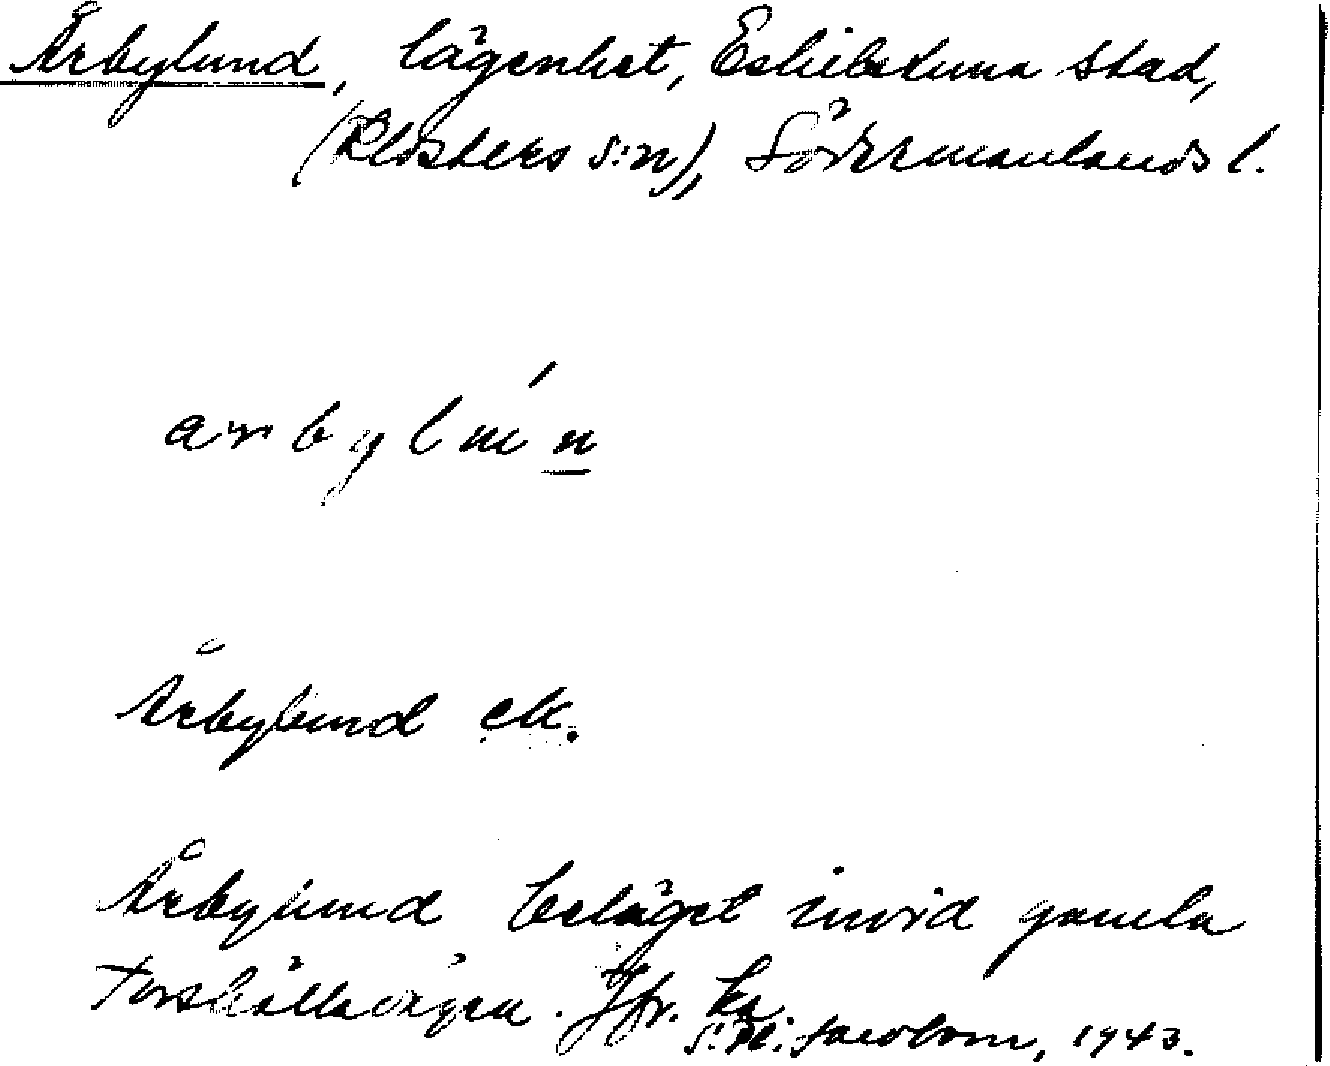 Årbylund, lägenhet, Eskilstuna stad,
(Klosters s:n), Södermanlands l.
arbylun
Årbylund ek.
Årbylund beläget invid gamla
Torshällavägen. Jfr. ka.
Jacobson, 1943.